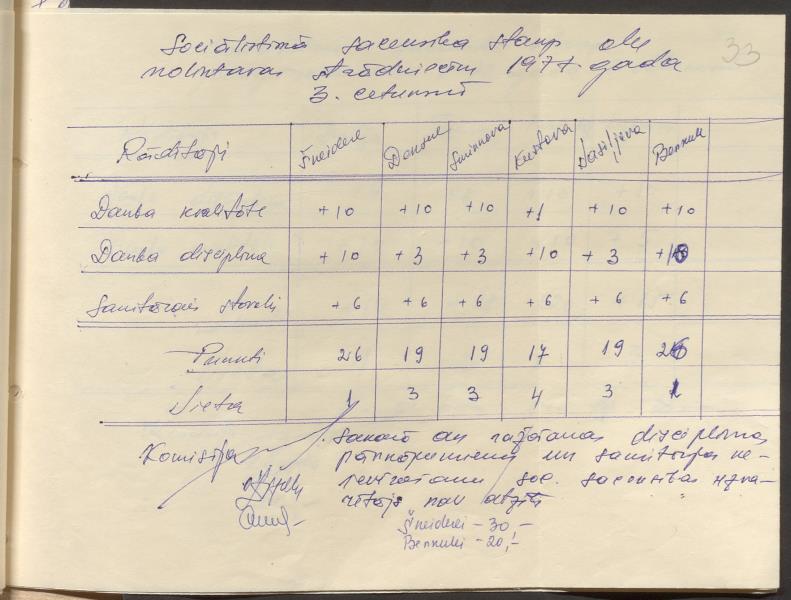 Sociālistiskā sacensība starp olu
noliktavas strādniecēm 1977. gada
3. ceturksnī
33
Rādītāji Šneidere Smirnova Kustova Vasiļjeva
Darba kvalitāte +10 +10 +10 +1 +10 +10
Darba disciplīna +10 +3 +3 +10 +3
Sanitārais stāvoklis +6 +6 +6 +6 +6 +6
Punkti 26 19 19 17 19
Vieta 1 3 3 4 3
Komisija
Sakarā ar ražošanas disciplīnas
pārkāpumiem un sanitārijas ne-
ievērošanu soc. sacensības uzva-
rētājs nav atzīts
Šneiderei - 30 -
- 20,-